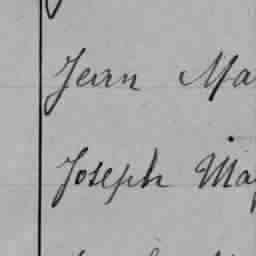 Jean Ma
Joseph Ma